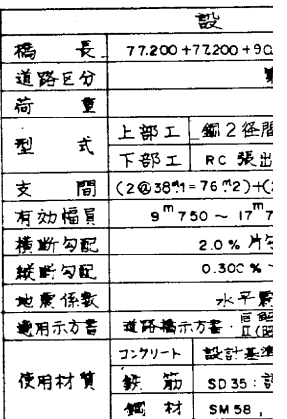 設
橋長 77.200+77.200+90.
道路区分
荷重
型式 上部工 鋼2径間
下部工 RC 張出
支間 (2@38m1=76m2)+(2
有効幅員 9m750 ~ 17m7
横断勾配 2.0% 片勾
縦断勾配 0.300% ~
地震係数 水平震
適用示方書 道路橋示方書・
使用材質 コンクリート 設計基準
鉄筋 SD35:
鋼材 SM58,